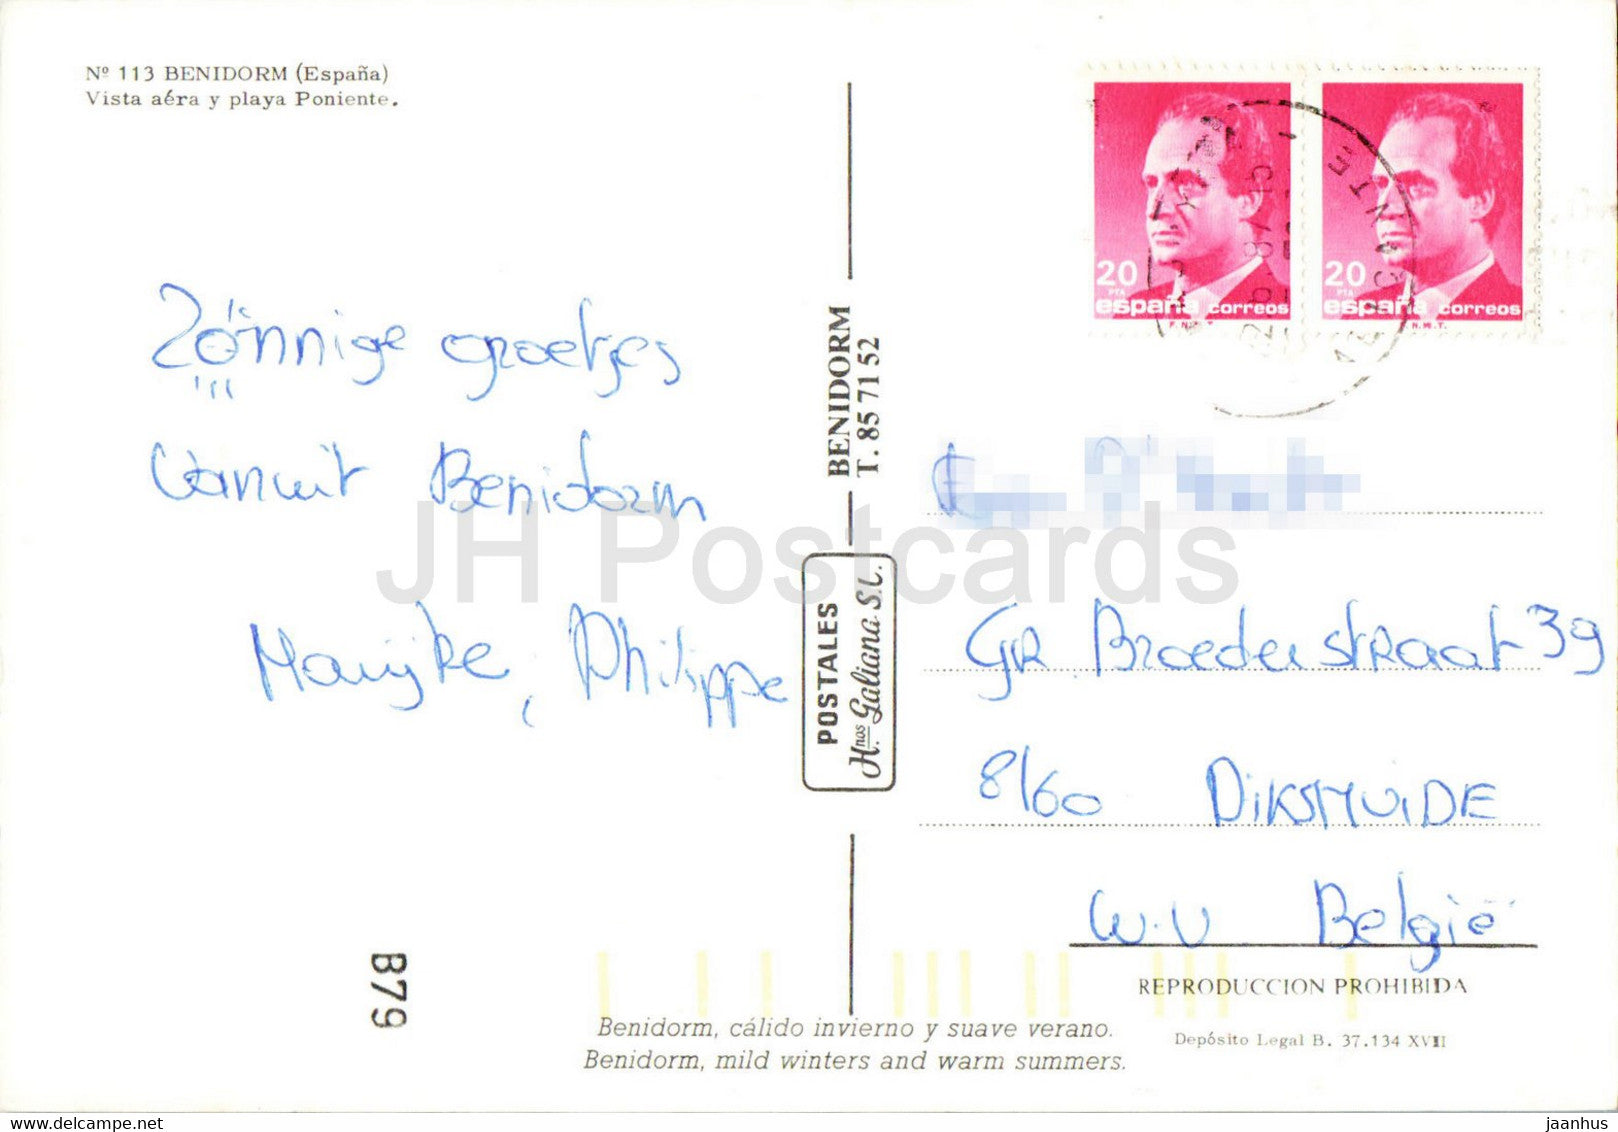 Nº 113 BENIDORM (España)
Vista aéra y playa Poniente.
Zonnige groetjes
vanuit Benidorm
Marijke, Philippe
BENIDORM
T. 85 71 52
POSTALES
Hnos Galiana S.L.
20
PTA
españa correos
F.N.M.T.
20
PTA
españa correos
N.M.T.
GR Broederstraat 39
8160 DIKSMUIDE
W.V België
REPRODUCCION PROHIBIDA
Depósito Legal B. 37.134 XVII
B79
Benidorm, cálido invierno y suave verano.
Benidorm, mild winters and warm summers.
JH Postcards
delcampe.net
jaanhus